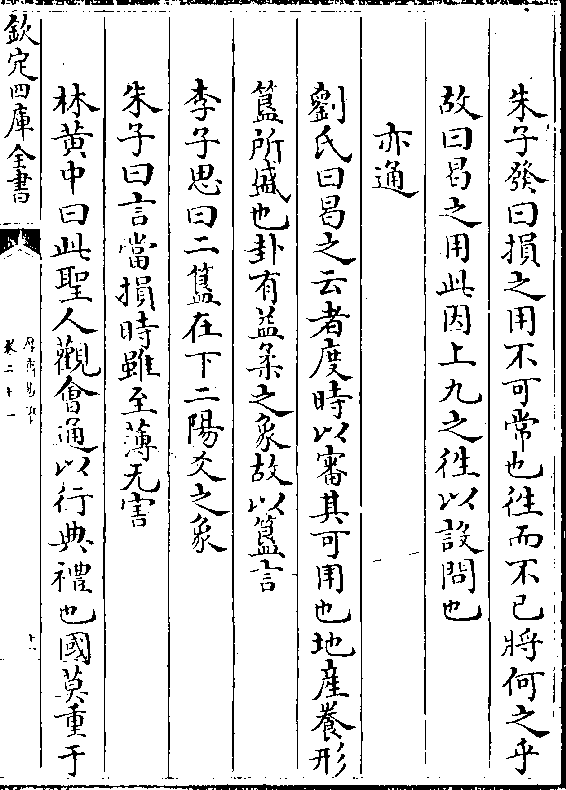 朱子發曰損之用不可常也往而不已將何之乎
故曰曷之用此因上九之往以設問也
亦通
劉氏曰曷之云者度時以審其可用也地産養形
簋所盛也卦有益柔之象故以簋言
李子思曰二簋在下二陽爻之象
朱子曰言當損時雖至薄无害
林黄中曰此聖人觀㑹通以行典禮也國莫重于
欽定四庫全書
厚齋易學
卷二十一
十一